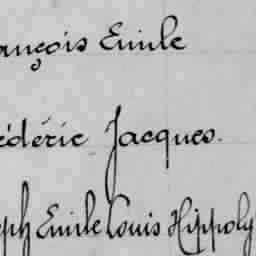 ançois Emile
édéric Jacques.
eph Emile Louis Hippoly